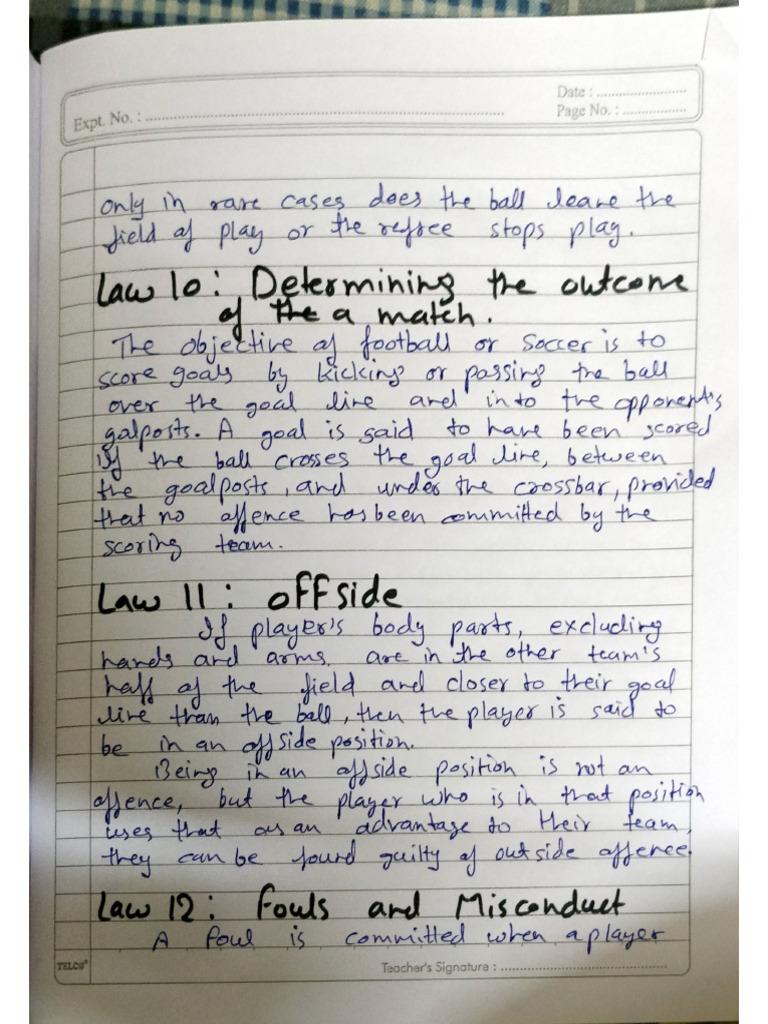 Date : ........................
Expt. No. : ........................ Page No. : ................
only in rare cases does the ball leave the
field of play or the refree stops play.
Law 10: Determining the outcome
of the a match.
The objective of football or soccer is to
score goals by kicking or passing the ball
over the goal line and into the opponent's
galposts. A goal is said to have been scored
if the ball crosses the goal line, between
the goalposts, and under the crossbar, provided
that no offence has been committed by the
scoring team.
Law 11: offside
If player's body parts, excluding
hands and arms, are in the other team's
half of the field and closer to their goal
line than the ball, then the player is said to
be in an offside position.
Being in an offside position is not an
offence, but the player who is in that position
uses that as an advantage to their team,
they can be found guilty of outside offence.
Law 12: Fouls and Misconduct
A foul is committed when a player
TELCO® Teacher's Signature : ........................